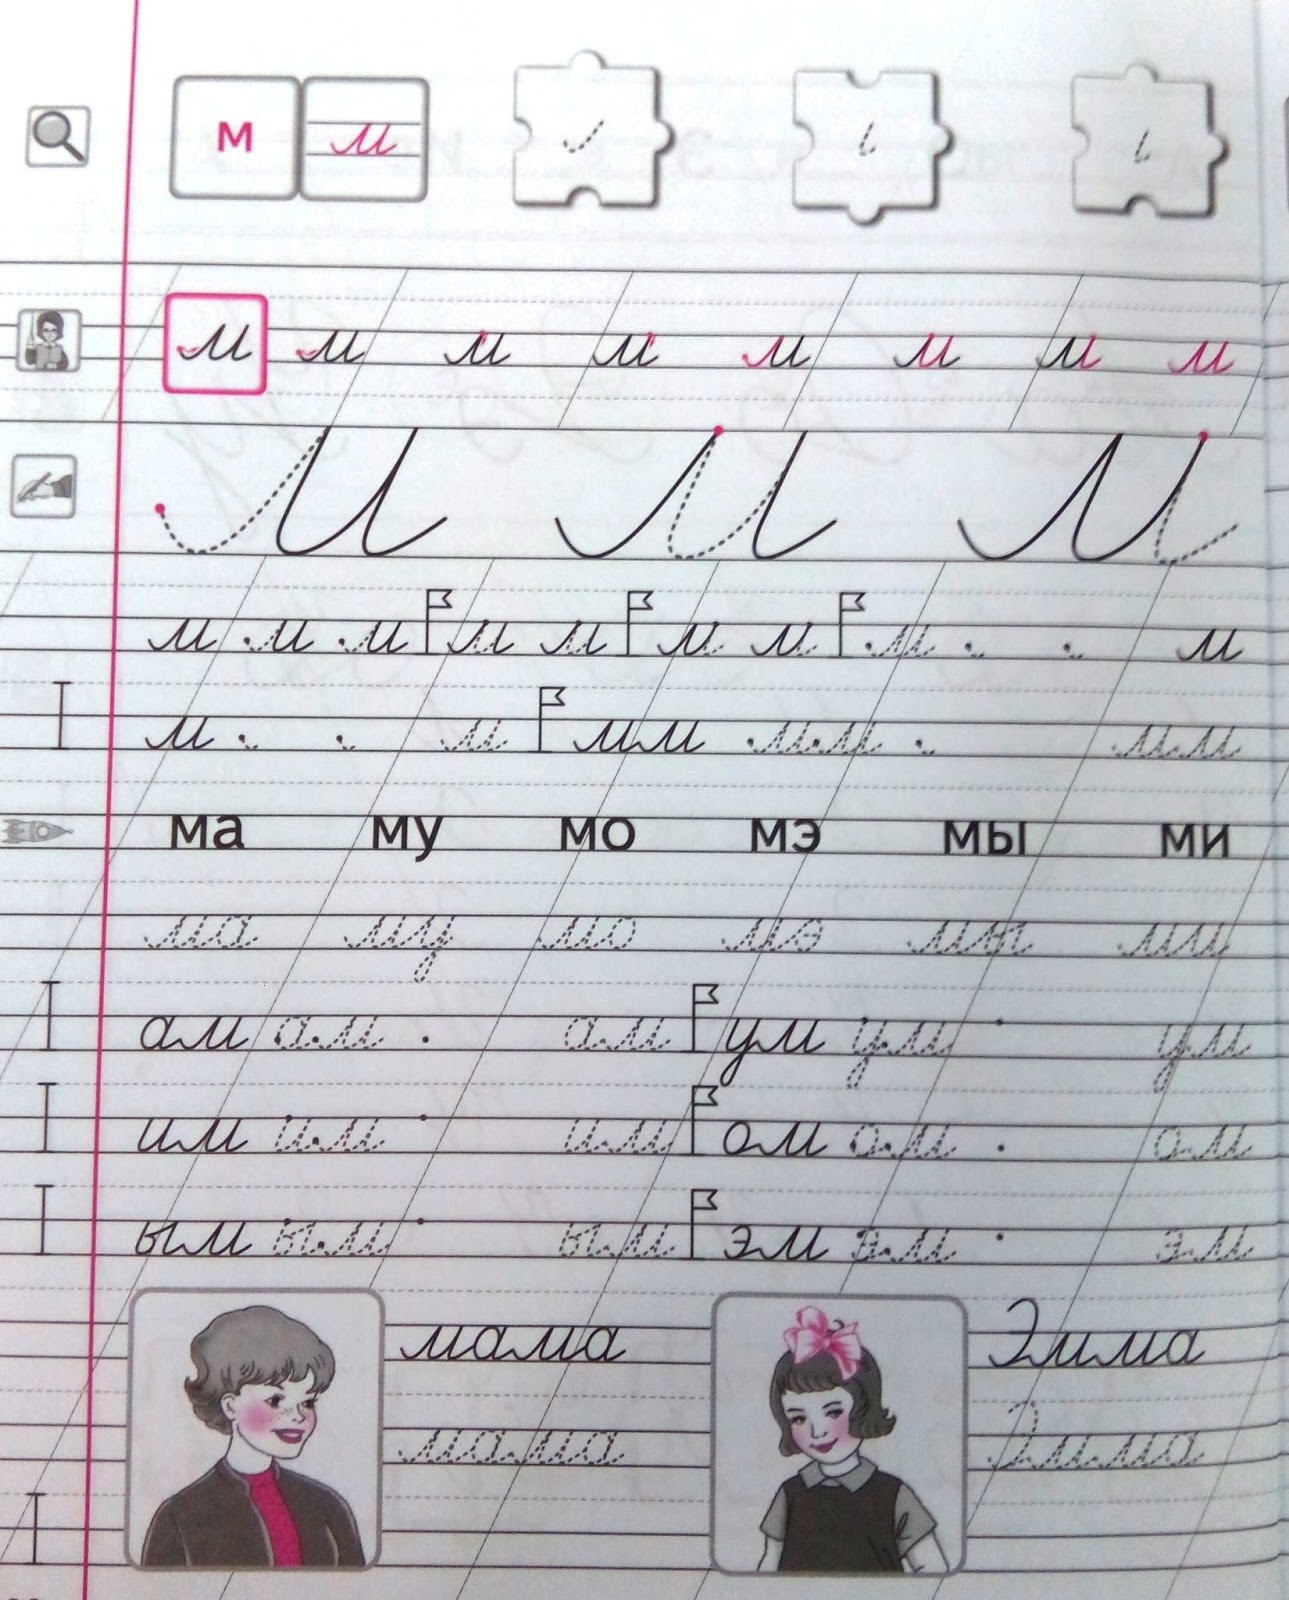 м м
м м м м м м м м
м м м
м м м м м м м м м
м м мм мм мм
ма му мо мэ мы ми
ма му мо мэ мы ми
ам ам ам ум ум ум
им им им ом ом ом
ым ым ым эм эм эм
мама Эмма
мама Эмма